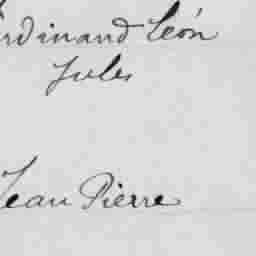 rdinand Léon
Jules
Jean Pierre